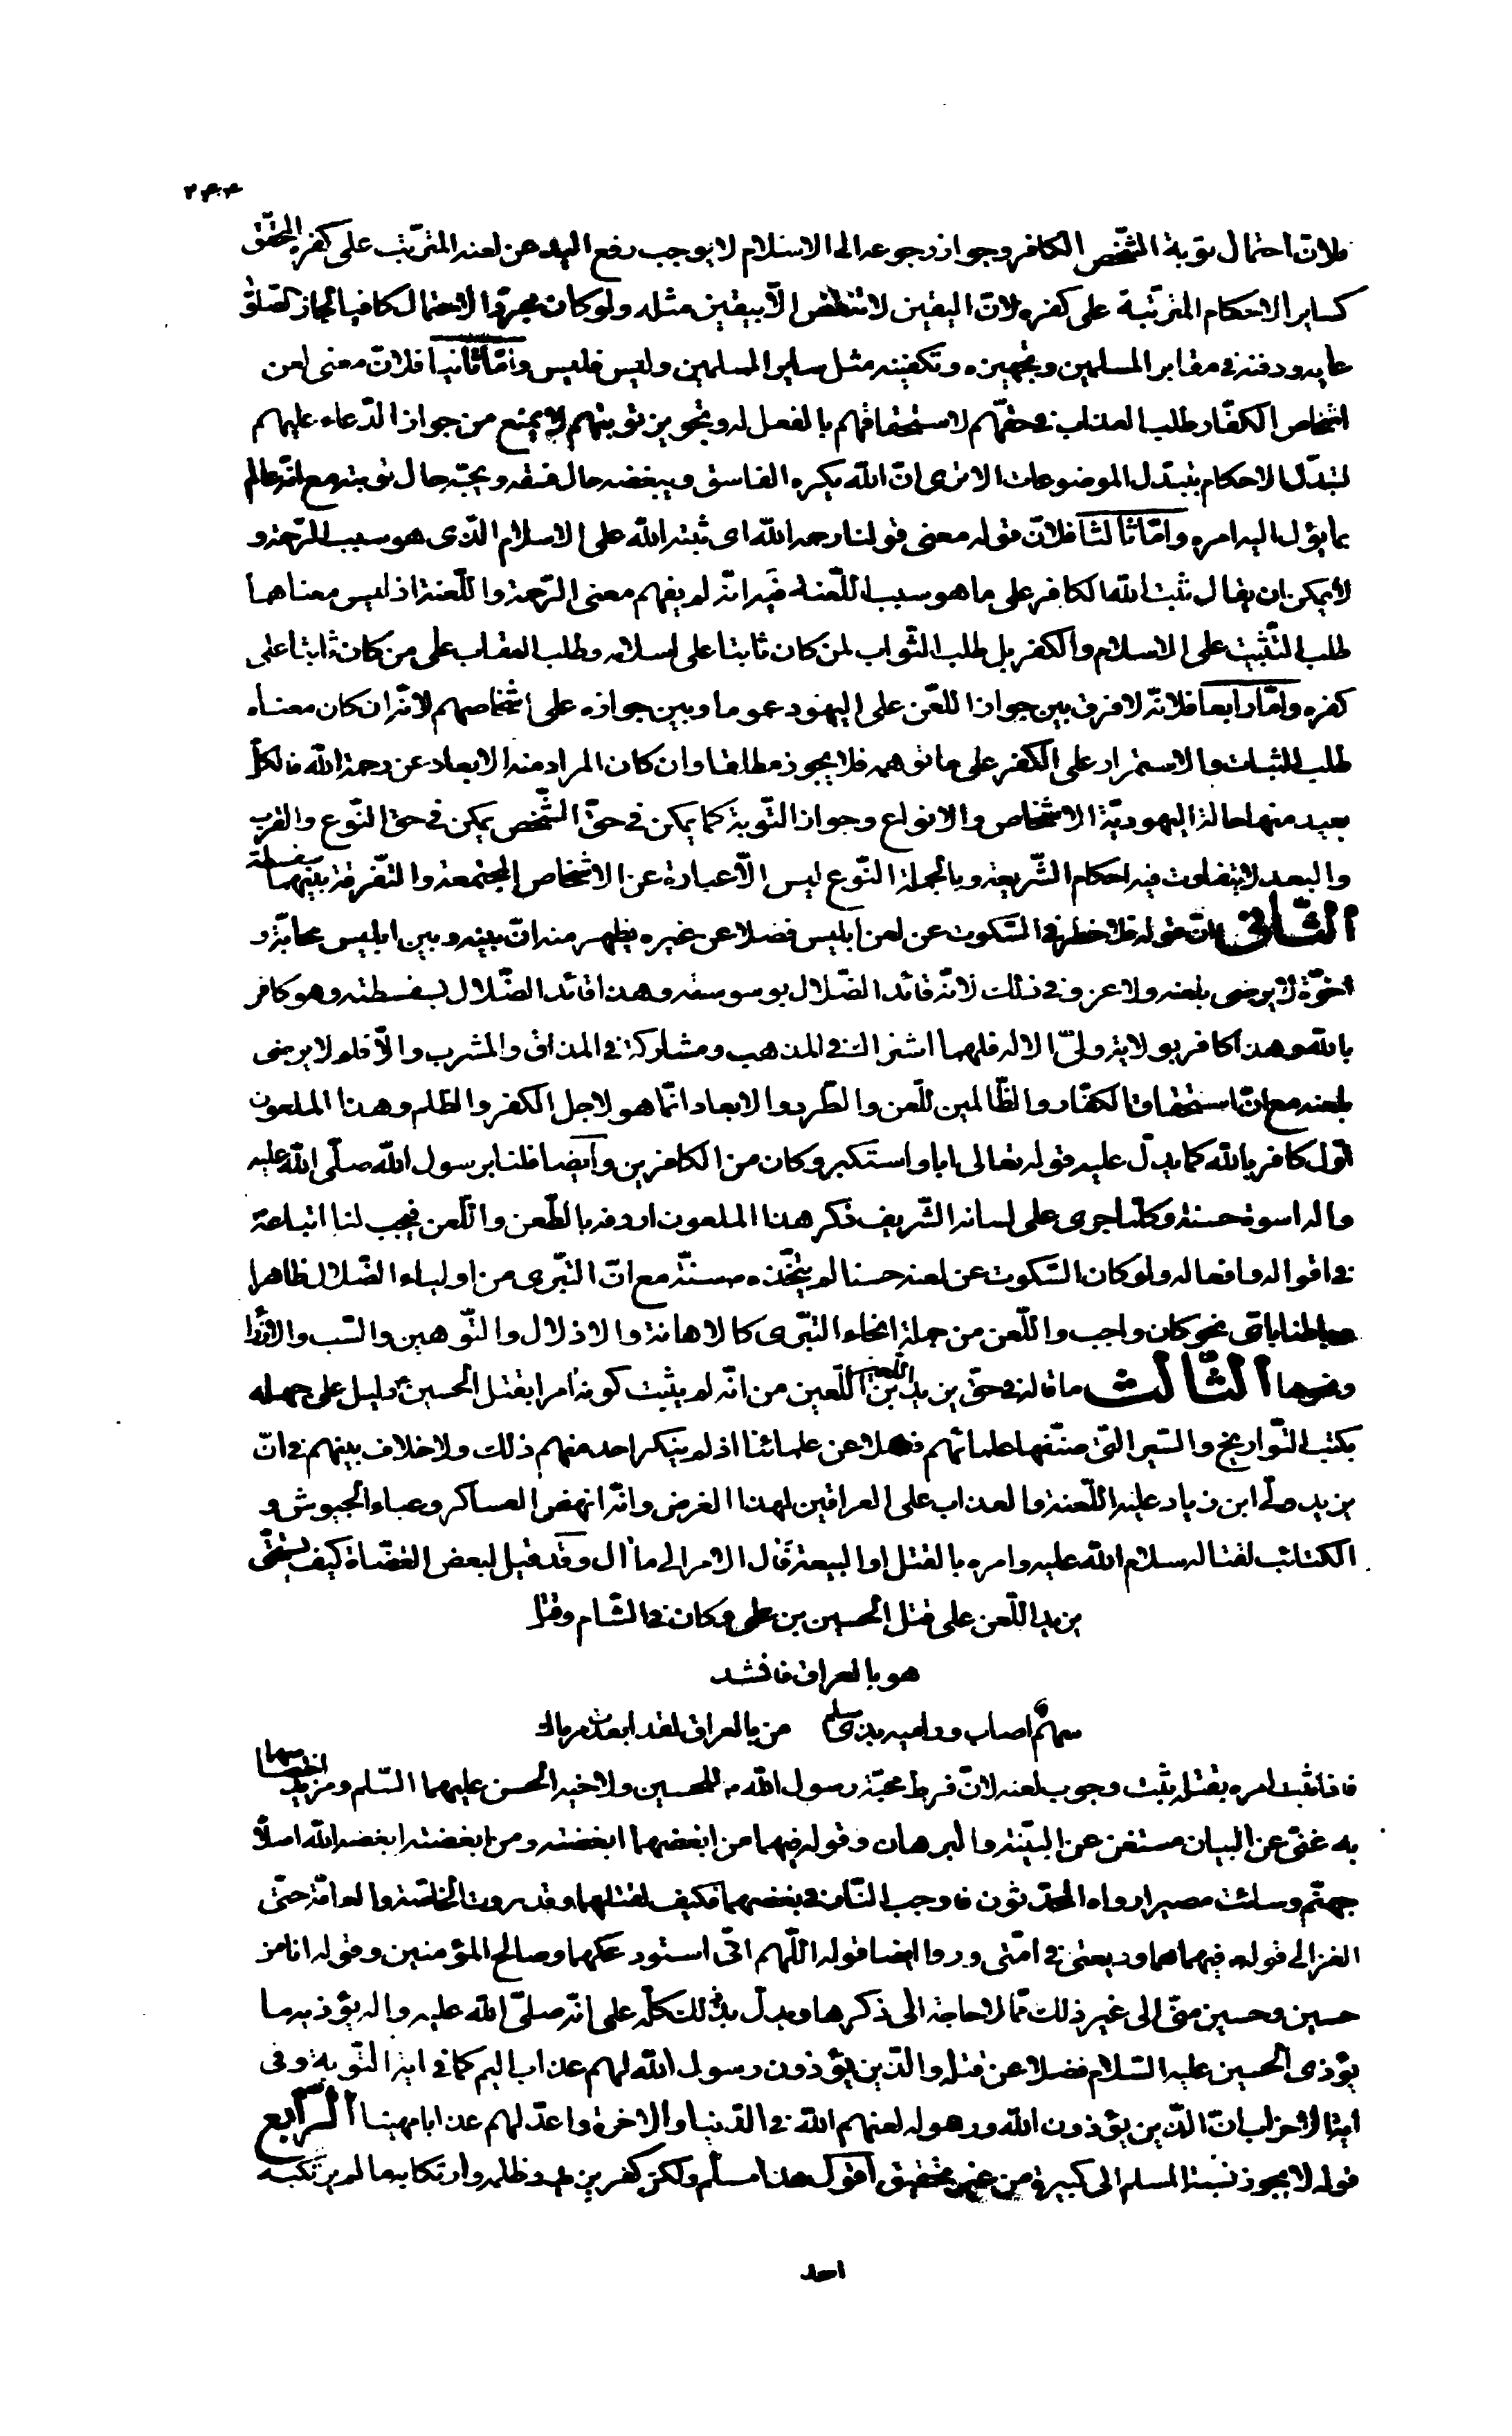 ۲۴۴
فلانّ احتمال توبة الشّخص الكافر وجواز رجوعه الى الاسلام لا يوجب رفع اليد عن لعنه المترتّب على كفره المحقّق
كساير الاحكام المترتّبة على كفره لانّ اليقين لا تنقض الّا بيقين مثله ولو كان مجرّد الاحتمال كافيا لجاز الصّلوة
عليه ودفنه فى مقابر المسلمين وتجهيزه وتكفينه مثل ساير المسلمين وليس فليس وامّا ثانيا فلانّ معنى لعن
اشخاص الكفّار طلب العذاب فى حقّهم لاستحقاقهم بالفعل له وتجويز توبتهم لا يمنع من جواز الدّعاء عليهم
لتبدّل الاحكام بتبدّل الموضوعات الا ترى انّ الله يكره الفاسق ويبغضه حال فسقه ويحبّه حال توبته مع انّه عالم
بما يؤل اليه امره وامّا ثالثا فلانّ قوله معنى قولنا رحمه الله اى ثبته الله على الاسلام الّذى هو سبب الرّحمة و
لا يمكن ان يقال ثبت الله الكافر على ما هو سبب اللّعنة فيه انّه لم يفهم معنى الرّحمة واللّعنة اذ ليس معناهما
طلب التّثبيت على الاسلام والكفر بل طلب الثّواب لمن كان ثابتا على اسلامه وطلب العقاب على من كان ثابتا على
كفره وامّا رابعا فلانّه لا فرق بين جواز اللّعن على اليهود عموما وبين جوازه على اشخاصهم لانّه ان كان معناه
طلب الثبات والاستمرار على الكفر على ما توهمه فلا يجوز مطلقا وان كان المراد منه الابعاد عن رحمة الله فالكلّ
بعيد منها حالة اليهوديّة الاشخاص والانواع وجواز التّوبة كما يمكن فى حقّ الشّخص يمكن فى حق النّوع والقرب
والبعد لا يتفاوت فيه احكام الشّريعة وبالجملة النّوع ليس الّا عبارة عن الاشخاص المجتمعة والتّفرقة بينهما سفسطة
الثّانى انّ قوله فلا خطر فى السّكوت عن لعن ابليس فضلا عن غيره يظهر منه انّ بينه وبين ابليس محابّة و
اخوّة لا يرضى بلعنه ولا غرو فى ذلك لانّه قائد الضّلال بوسوسته وهذا قائد الضّلال بسفسطته وهو كافر
بالله وهذا كافر بولاية ولىّ الاله فلهما اشتراك فى المذهب ومشاركة فى المذاق والمشرب والّا فلم لا يرضى
بلعنه مع انّ استحقاق الكفّار والظّالمين للّعن والطّرد والابعاد انّما هو لاجل الكفر والظلم وهذا الملعون
اوّل كافر بالله كما يدلّ عليه قوله تعالى ابا واستكبر وكان من الكافرين وايضا فلنا برسول الله صلّى الله عليه
واله اسوة حسنة وكلّما جرى على لسانه الشّريف ذكر هذا الملعون اردفه بالطّعن واللّعن فيجب لنا اتباعه
فى اقواله وافعاله ولو كان السّكوت عن لعنه حسنا لم يتّخذه سنّة مع انّ التّبرّى من اولياء الضّلال ظاهرا
وباطنا باىّ نحو كان واجب واللّعن من جملة انحاء التبرّى كالاهانة والاذلال والتّوهين والسّب والازراء
ونحوها الثّالث ما قاله فى حقّ يزيد اللّعين بن اللّعين من انّه لم يثبت كونه آمرا بقتل الحسين دليل على جهله
بكتب التّواريخ والسّير الّتى صنّفها علمائهم فضلا عن علمائنا اذ لم ينكر احد منهم ذلك ولا خلاف بينهم فى انّ
يزيد ولّى ابن زياد عليه اللّعنة والعذاب على العراقين لهذا الغرض وانّه انهض العساكر وعباء الجيوش و
الكتائب لقتاله سلام الله عليه وامره بالقتل او البيعة فآل الامر الى ما آل وقد قيل لبعض القضّاة كيف يستحقّ
يزيد اللّعن على قتل الحسين بن على وكان فى الشّام وقتل
هو بالعراق فانشد
سهم اصاب وراميه بذى سلم من بالعراق لقد ابعدت مرماك
فاذا ثبت امره بقتله يثبت وجوب لعنه لانّ فرط محبّة رسول الله للحسين ولاخيه الحسن عليهما السّلم ومزيد اختصاصهما
به غنىّ عن البيان مستغن عن البيّنة والبرهان وقوله فيهما من ابغضهما ابغضته ومن ابغضته ابغضه الله اصلاه
جهنّم وسائت مصيرا رواه المحدّثون فاوجب النّار فى بغضهما فكيف لقتلهما وقد روت الخاصّة والعامّة حتّى
الغزالى قوله فيهما هما وديعتى فى امّتى ورووا ايضا قوله اللّهم انّى استودعكهما وصالح المؤمنين وقوله انا من
حسين وحسين منّى الى غير ذلك ممّا لا حاجة الى ذكرها ويدلّ بذلك كلّه على انّه صلّى الله عليه واله يؤذيه ما
يؤذى الحسين عليه السّلام فضلا عن قتله والّذين يؤذون رسول الله لهم عذاب اليم كما فى اية التّوبة وفى
اية الاحزاب انّ الّذين يؤذون الله ورسوله لعنهم الله فى الدّنيا والاخرة واعدّ لهم عذابا مهينا الرّابع
قوله لا يجوز نسبة المسلم الى كبيرة من غير تحقيق اقول هذا مسلّم ولكن كفر يزيد وظلمه وارتكابه ما لم يرتكبه
احد